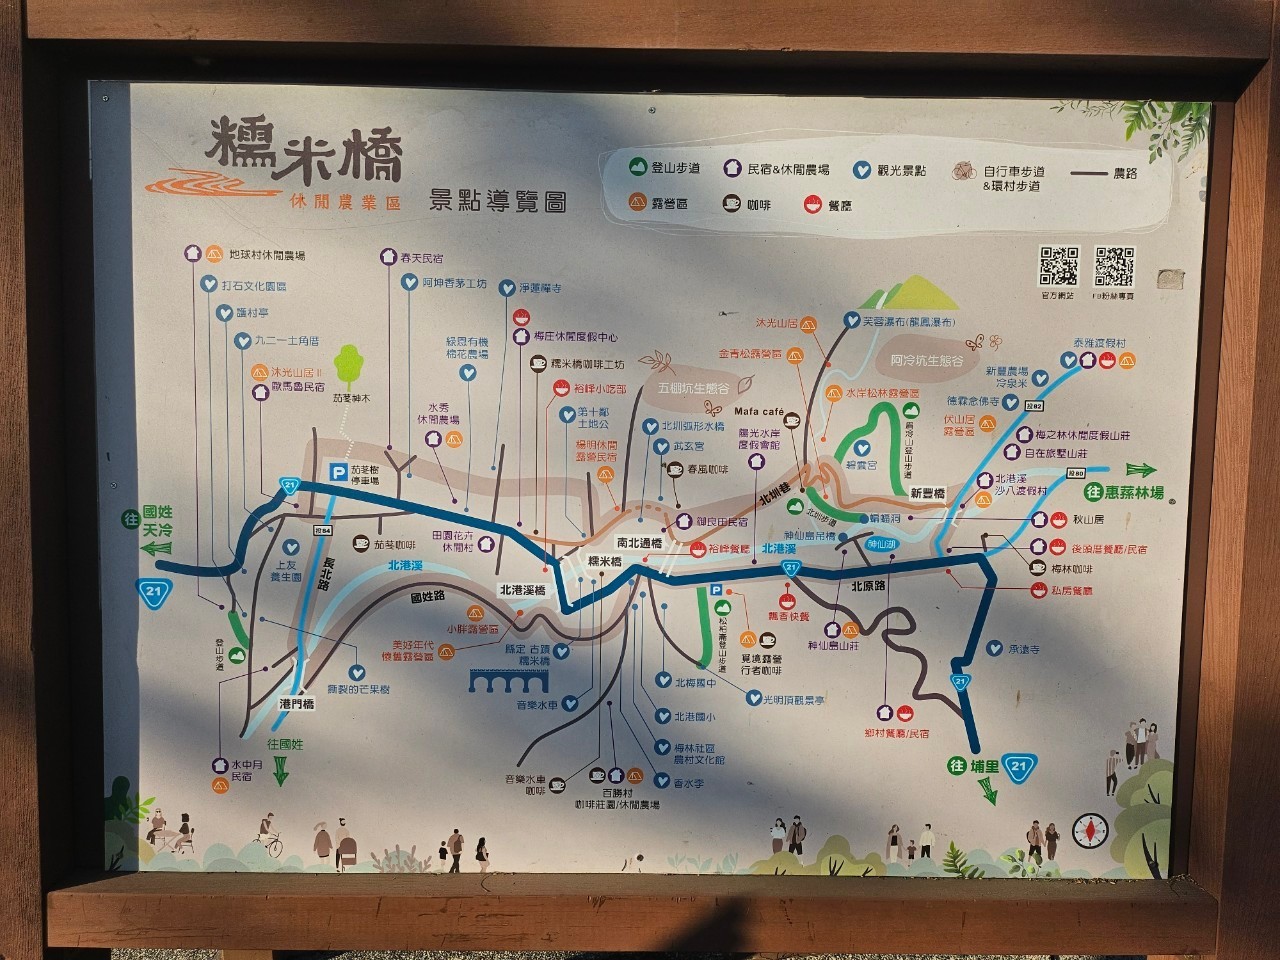 糯米橋
休閒農業區
景點導覽圖
登山步道
民宿&休閒農場
觀光景點
自行車步道
&環村步道
農路
露營區
咖啡
餐廳
官方網站
FB粉絲專頁
地球村休閒農場
打石文化園區
護村亭
九二一土角厝
沐光山居II
歐馬魯民宿
茄苳神木
春天民宿
阿坤香茅工坊
淨蓮禪寺
梅庄休閒度假中心
綠恩有機
棉花農場
糯米橋咖啡工坊
裕峰小吃部
水秀
休閒農場
第十鄰
土地公
楊明休閒
露營民宿
五棚坑生態谷
北圳弧形水橋
武玄宮
春風咖啡
Mafa café
陽光水岸
度假會館
沐光山居
金青松露營區
芙蓉瀑布(龍鳳瀑布)
阿冷坑生態谷
水岸松林露營區
碧雲宮
阿冷山登山步道
新豐農場
冷泉米
德霖念佛寺
伏山居
露營區
泰雅渡假村
投82
梅之林休閒度假山莊
自在旅墅山莊
北港溪
沙八渡假村
投80
往惠蓀林場
新豐橋
秋山居
後頭厝餐廳/民宿
梅林咖啡
私房餐廳
往國姓
天冷
21
21
P
茄苳樹
停車場
投84
茄苳咖啡
田園花卉
休閒村
上友
養生園
長北路
北港溪
國姓路
北港溪橋
糯米橋
南北通橋
御良田民宿
裕峰餐廳
北圳巷
北圳步道
蝙蝠洞
神仙島吊橋
神仙湖
北港溪
21
北原路
飄香快餐
神仙島山莊
P
松柏崙登山步道
覓境露營
行者咖啡
登山步道
美好年代
懷舊露營區
小胖露營區
縣定古蹟
糯米橋
撕裂的芒果樹
港門橋
往國姓
水中月
民宿
音樂水車
音樂水車
咖啡
百勝村
咖啡莊園/休閒農場
北梅國中
北港國小
梅林社區
農村文化館
香水李
光明頂觀景亭
鄉村餐廳/民宿
承遠寺
21
往埔里
21